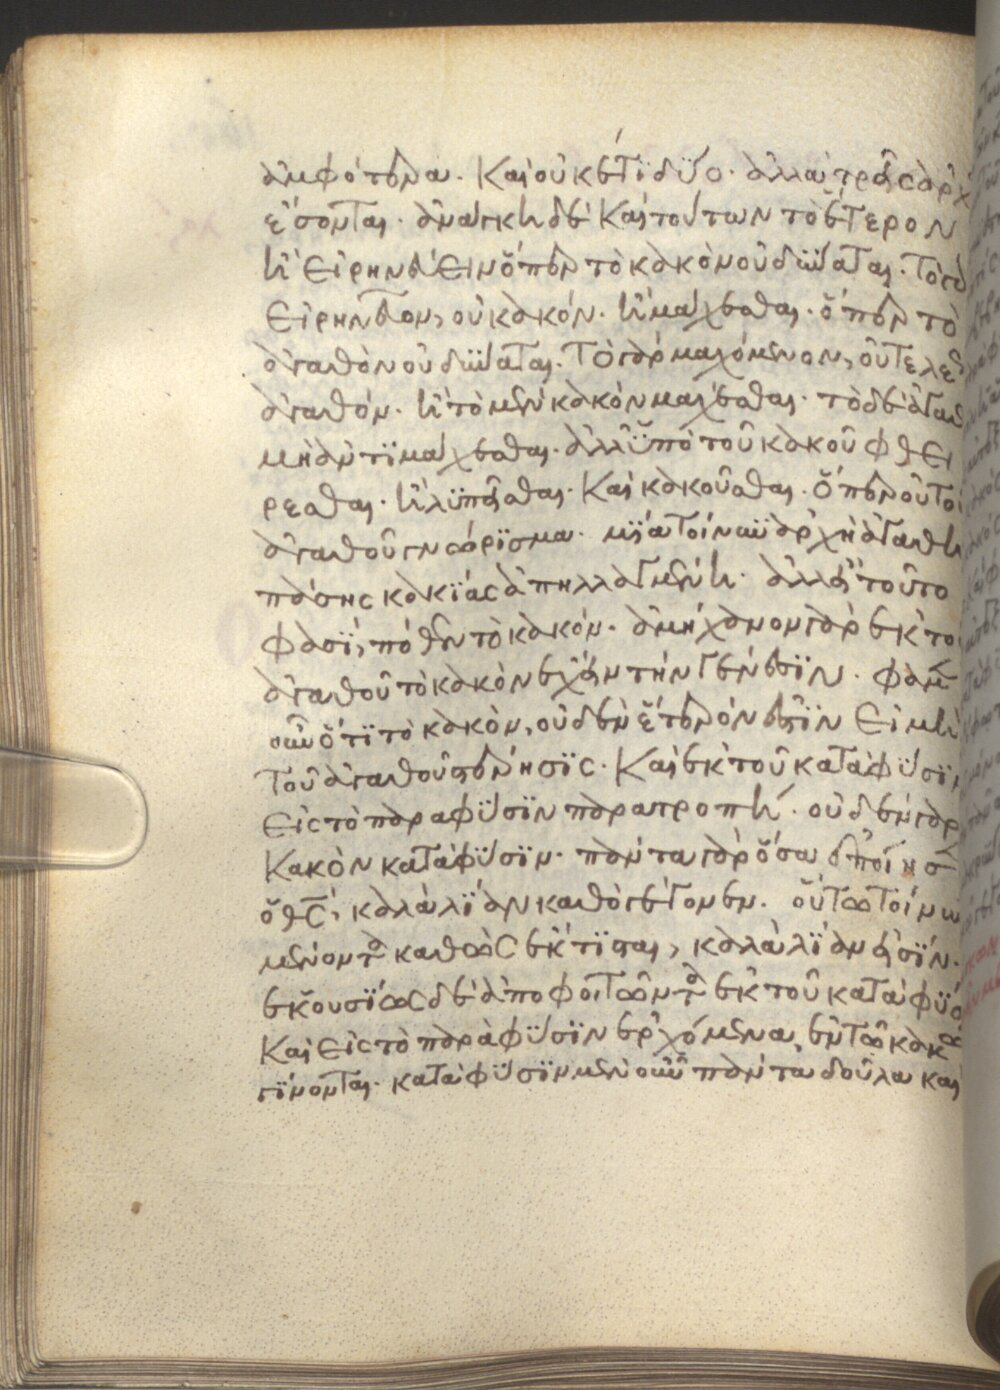 ἀμφότερα. Καὶ οὐκέτι δύο. ἀλλὰ τρεῖς ἀρχ
ἔσονται. ἀνάγκη δὲ καὶ τούτων τὸ ἕτερον
ἢ εἰρηνεύειν ὅπερ τὸ κακὸν οὐ δύναται. τὸ γὰρ
εἰρηνεῦον, οὐ κακόν. ἢ μάχεσθαι. ὅπερ τὸ
ἀγαθὸν οὐ δύναται. τὸ γὰρ μαχόμενον, οὐ τελέ
ἀγαθόν. ἢ τὸ μὲν κακὸν μάχεσθαι. τὸ δὲ ἀγαθ
μὴ ἀντιμάχεσθαι. ἀλλ' ὑπὸ τοῦ κακοῦ φθεί
ρεσθαι. ἢ λυπεῖσθαι. καὶ κακοῦσθαι. ὅπερ οὐ τοῦ
ἀγαθοῦ γνώρισμα. μία τοίνυν ἀρχὴ ἀγαθὴ
πάσης κακίας ἀπηλλαγμένη. ἀλλ' εἰ τοῦτο
φασί, πόθεν τὸ κακόν. ἀμήχανον γὰρ ἐκ το
ἀγαθοῦ τὸ κακὸν ἔχειν τὴν γένεσιν. φαμ
οὖν ὅτι τὸ κακὸν, οὐδὲν ἕτερόν ἐστιν εἰ μὴ
τοῦ ἀγαθοῦ στέρησις. Καὶ ἐκ τοῦ κατὰ φύσιν
εἰς τὸ παρὰ φύσιν παρατροπή. οὐδὲν γὰρ
κακὸν κατὰ φύσιν. πάντα γὰρ ὅσα ἐποίησ
ὁ θς, καλὰ λίαν καθὸ γέγονεν. οὕτω τοίνυν
μένοντα καθὼς ἔκτισται, καλὰ λίαν εἰσίν.
ἑκουσίως δὲ ἀποφοιτῶντα ἐκ τοῦ κατὰ φύσ
Καὶ εἰς τὸ παρὰ φύσιν ἐρχόμενα, ἐν τῷ κακῷ
γίνονται. κατὰ φύσιν μὲν οὖν πάντα δοῦλα καὶ